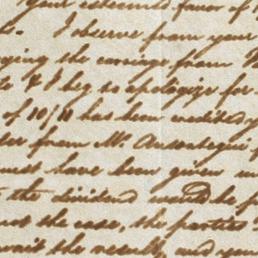 Your esteemed favor of
I observe from your
ying the carriage from
& I beg to apologize for
of 10/11 has been credited y
ter from Mr.
must have been given
the dividend would be p
not the case, the parties
await the result, and you